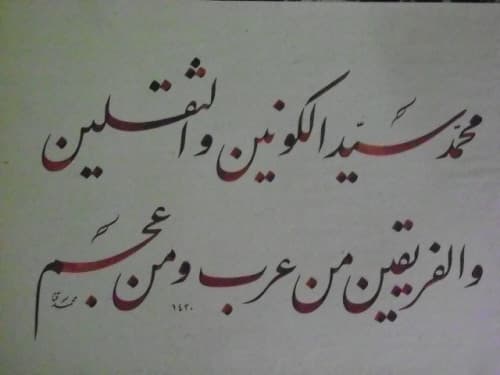 محمّد سيّد الكونين والثقلين
والفريقين من عرب ومن عجم
١٤٢٠